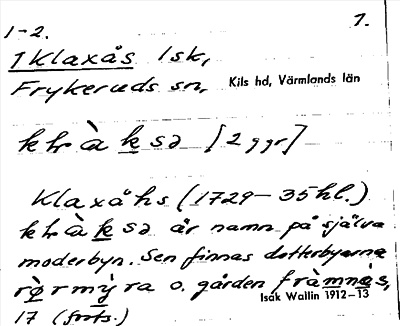 1-2. 1.
1 Klaxås 1sk,
Frykeruds sn, Kils hd, Värmlands län
[2 ggr]
Klaxåhs (1729-35 hl.)
är namn på själva
moderbyn. Sen finnas dotterbyarna
o. gården
Isak Wallin 1912-13
17 (forts.)